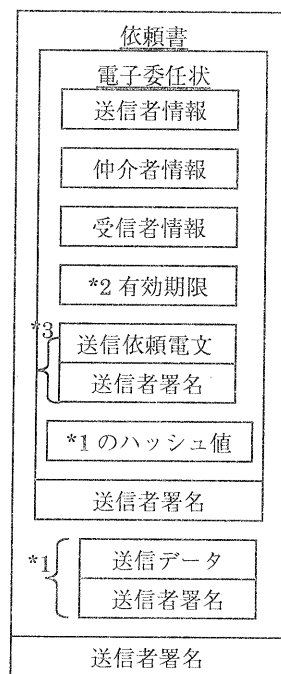 依頼書
電子委任状
送信者情報
仲介者情報
受信者情報
*2 有効期限
*3
送信依頼電文
送信者署名
*1 のハッシュ値
送信者署名
*1
送信データ
送信者署名
送信者署名